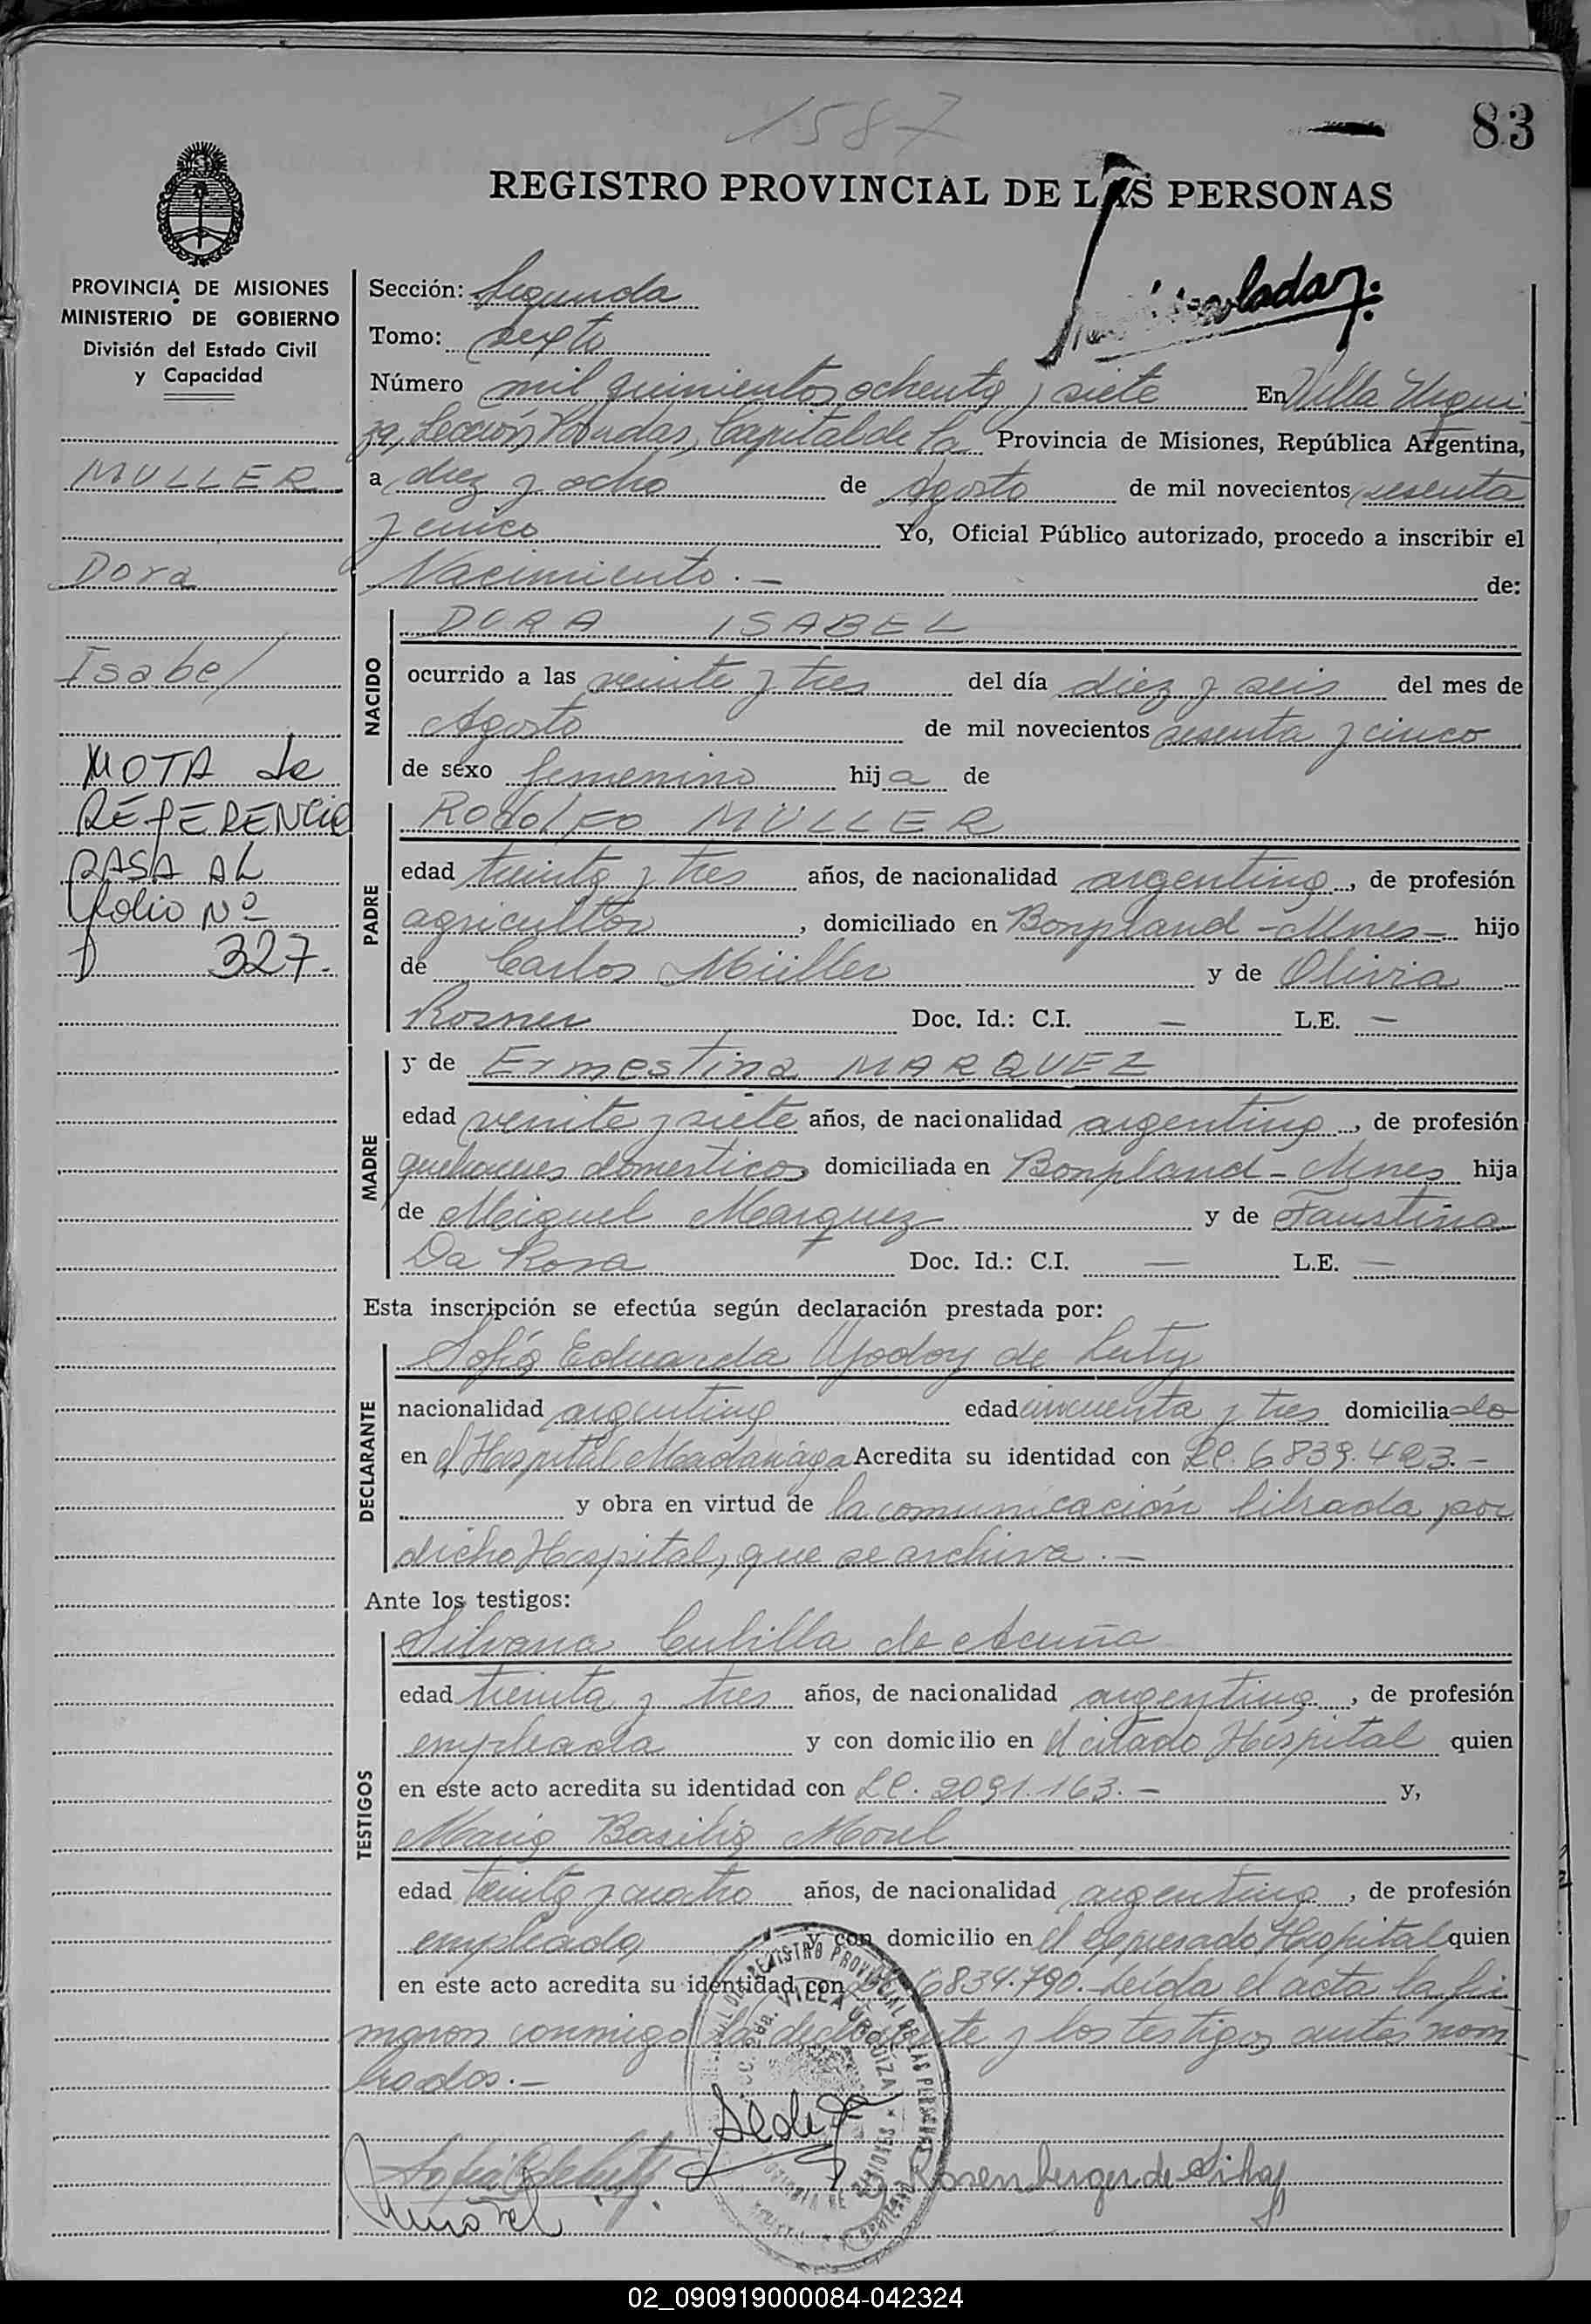 1587
83
REGISTRO PROVINCIAL DE LAS PERSONAS
PROVINCIA DE MISIONES
MINISTERIO DE GOBIERNO
División del Estado Civil
y Capacidad
MULLER
Dora
Isabel
NOTA de
REFERENCIA
PASA AL
folio Nº
327.
Sección: Segunda
Tomo: sexto
Número mil quinientos ochenta y siete En Villa Urqui
za, Sección Capital de la Provincia de Misiones, República Argentina,
a diez y ocho de Agosto de mil novecientos sesenta
y cinco Yo, Oficial Público autorizado, procedo a inscribir el
Nacimiento.— de:
NACIDO
DORA ISABEL
ocurrido a las veinte y tres del día diez y seis del mes de
Agosto de mil novecientos sesenta y cinco
de sexo femenino hija de
PADRE
Rodolfo MÜLLER
edad treinta y tres años, de nacionalidad argentina, de profesión
agricultor, domiciliado en Bonpland - Mnes - hijo
de Carlos Müller y de Olivia
Rosner Doc. Id.: C.I. — L.E. —
MADRE
y de Ermestina MARQUEZ
edad veinte y siete años, de nacionalidad argentina, de profesión
quehaceres domesticos domiciliada en Bonpland - Mnes hija
de Miguel Marquez y de Faustina
Da Rosa Doc. Id.: C.I. — L.E. —
Esta inscripción se efectúa según declaración prestada por:
DECLARANTE
Sofía Eduarda Godoy de Luty
nacionalidad argentina edad cincuenta y tres domiciliado
en el Hospital Madariaga Acredita su identidad con LC. 6839.423.—
y obra en virtud de la comunicación librada por
dicho Hospital, que se archiva.—
Ante los testigos:
TESTIGOS
Silvana Cubilla de Acuña
edad treinta y tres años, de nacionalidad argentina, de profesión
empleada y con domicilio en el citado Hospital quien
en este acto acredita su identidad con LC. 2091.163.— y,
Maria Basilia Morel
edad treinta y cuatro años, de nacionalidad argentina, de profesión
empleada y con domicilio en el expresado Hospital quien
en este acto acredita su identidad con 6834.790. Leída el acta la fi
rmaron conmigo la declarante y los testigos antes nom
brados.—
Rosenberger de Silva
Morel
02_090919000084-042324